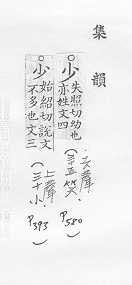 集韻
少
失照切幼也
亦姓文四
(三十五笑)
去聲
P580
少
始紹切說文
不多也文三
(三十小)
上聲
P393